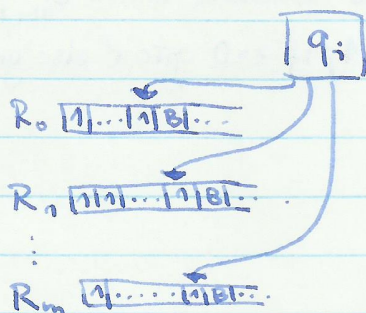 qi
R₀ 1|...|1|B|...
R₁ 1|1|...|1|B|...
⋮
Rₘ 1|.....|1|B|...